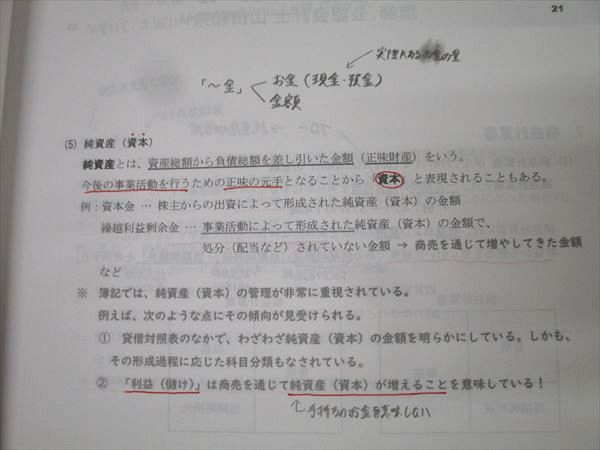 21
実際にあるお金の量
「〜金」 お金(現金・預金)
金額
(5) 純資産(資本)
純資産とは、資産総額から負債総額を差し引いた金額(正味財産)をいう。
今後の事業活動を行うための正味の元手となることから「資本」と表現されることもある。
例:資本金 … 株主からの出資によって形成された純資産(資本)の金額
繰越利益剰余金 … 事業活動によって形成された純資産(資本)の金額で、
処分(配当など)されていない金額 → 商売を通じて増やしてきた金額
など
※ 簿記では、純資産(資本)の管理が非常に重視されている。
例えば、次のような点にその傾向が見受けられる。
① 貸借対照表のなかで、わざわざ純資産(資本)の金額を明らかにしている。しかも、
その形成過程に応じた科目分類もなされている。
② 「利益(儲け)」は商売を通じて純資産(資本)が増えることを意味している!
手持ちのお金を意味しない